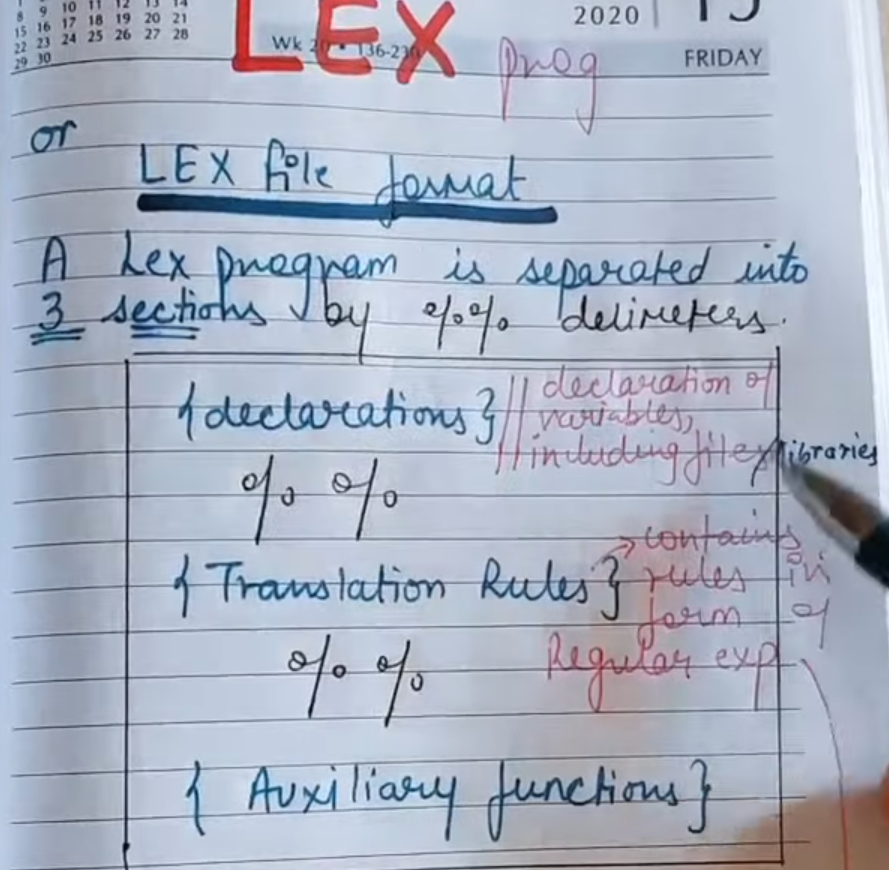 10 11 12 13 14
8 9
15 16 17 18 19 20 21
22 23 24 25 26 27 28
29 30
2020
15
Wk 20 • 136-230
FRIDAY
LEX
prog
or
LEX file format
A Lex program is separated into
3 sections by %% delimeters.
{declarations} // declaration of
variables,
// including files, libraries
%%
{Translation Rules} → contains
rules in
form of
Regular exp
%%
{ Auxiliary functions}